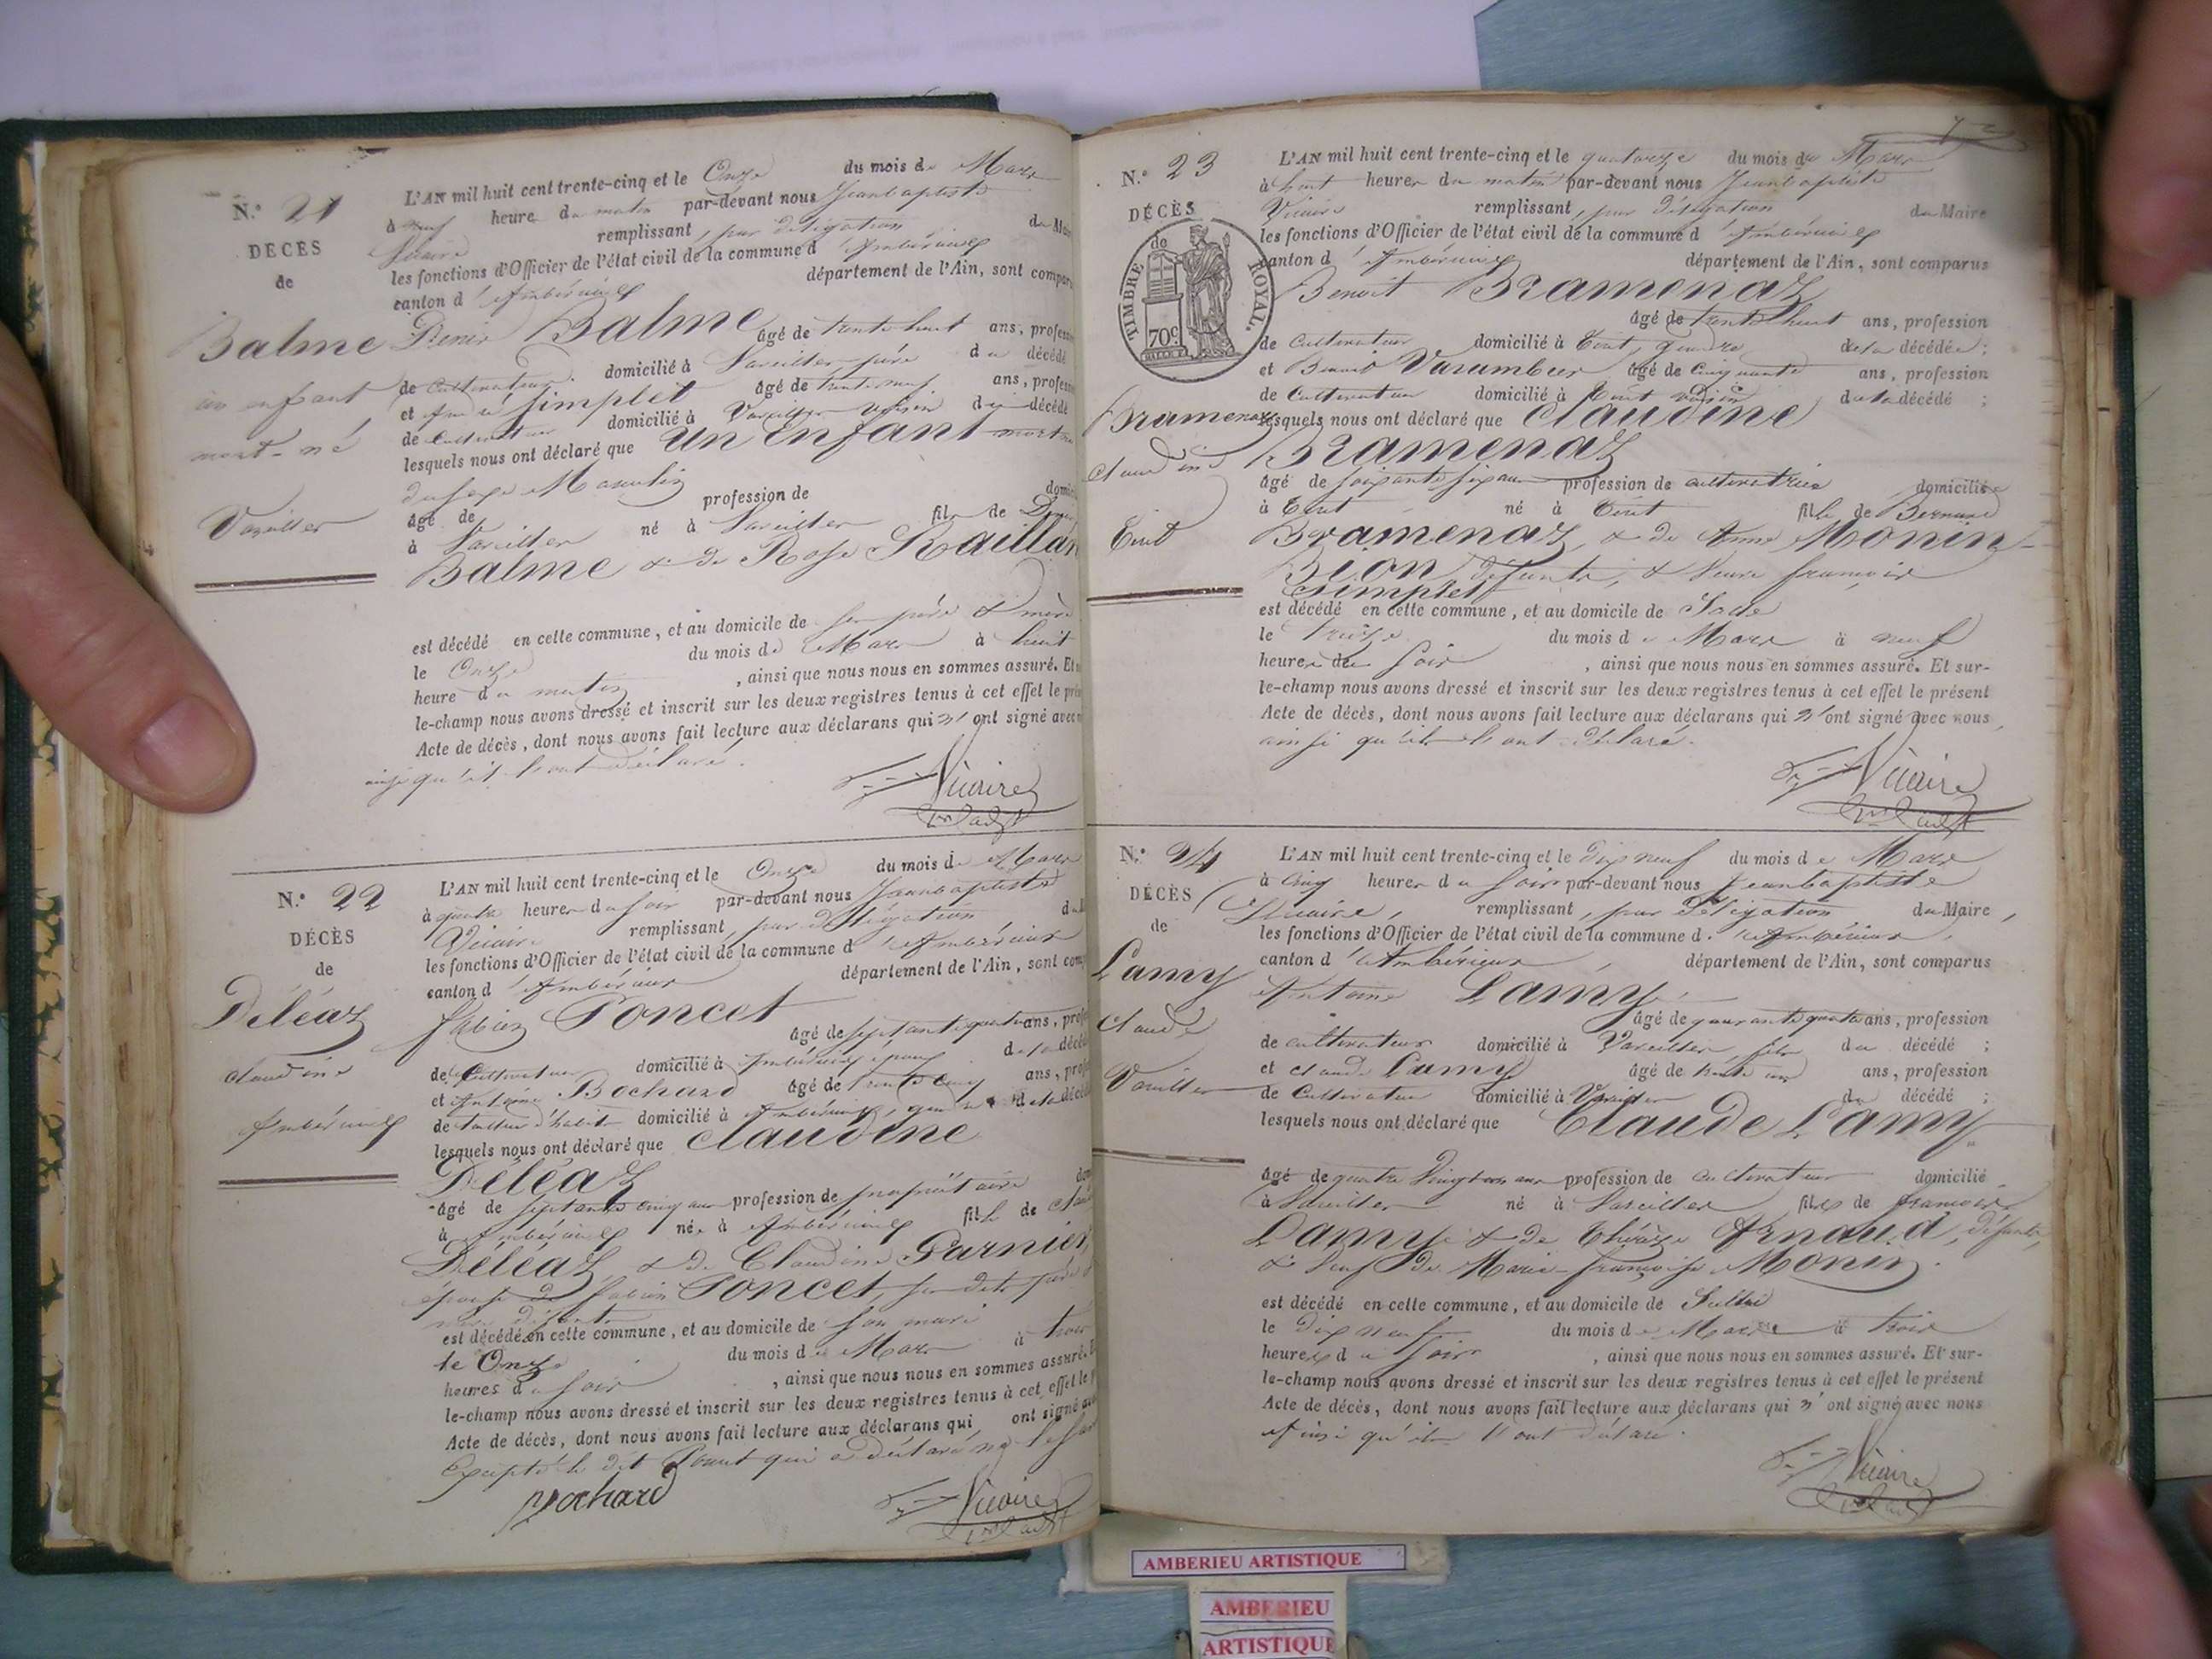 N.° 21
DÉCÈS
de
Balme
un enfant
mort-né
Vareilles
L'AN mil huit cent trente-cinq et le Onze du mois de Mars
à neuf heure du matin par-devant nous Jeanbaptiste
Vicaire remplissant, par délégation du Mai
les fonctions d'Officier de l'état civil de la commune d'Ambérieux
canton d'Ambérieux département de l'Ain, sont compar
Denis Balme âgé de trente huit ans, profess
de Cultivateur domicilié à Vareilles père du décédé
et Simplet âgé de trente neuf ans, profess
de Cultivateur domicilié à Vareilles voisin du décédé
lesquels nous ont déclaré que un Enfant mort né
du sexe Masculin
âgé de profession de domici
à Vareilles né à Vareilles fils de Denis
Balme & de Rose Raillar
est décédé en cette commune, et au domicile de ses père & mère
le Onze du mois de Mars à huit
heure du matin, ainsi que nous nous en sommes assuré. Et
le-champ nous avons dressé et inscrit sur les deux registres tenus à cet effet le pré
Acte de décès, dont nous avons fait lecture aux déclarans qui n'ont signé avec
ainsi qu'ils l'ont déclaré.
Vicaire
N.° 22
DÉCÈS
de
Déléaz
Claudine
Ambérieux
L'AN mil huit cent trente-cinq et le Onze du mois de Mars
à quatre heures du soir par-devant nous Jeanbaptiste
Vicaire remplissant, par délégation du M
les fonctions d'Officier de l'état civil de la commune d'Ambérieux
canton d'Ambérieux département de l'Ain, sont comp
fabien Poncet âgé de septante quatre ans, profe
de Cultivateur domicilié à Ambérieux époux de la décéd
et Antoine Bochard âgé de trente cinq ans, prof
de tailleur d'habits domicilié à Ambérieux, gendre de la décéd
lesquels nous ont déclaré que Claudine
Déléaz
âgé de septante cinq ans profession de propriétaire dom
à Ambérieux née à Ambérieux fille de Claud
Déléaz & de Claudine Garnier,
épouse de fabien Poncet, ses dits père &
mère défunts
est décédée en cette commune, et au domicile de son mari
le Onze du mois de Mars à trois
heures du soir, ainsi que nous nous en sommes assuré. E
le-champ nous avons dressé et inscrit sur les deux registres tenus à cet effet le p
Acte de décès, dont nous avons fait lecture aux déclarans qui ont signé av
Excepté le dit Poncet qui a déclaré ne le sav
Bochard
Vicaire
N.° 23
DÉCÈS
de
TIMBRE ROYAL.
70c
Bramenaz
Claudine
Tiret
L'AN mil huit cent trente-cinq et le quatorze du mois de Mars
à huit heures du matin par-devant nous Jeanbaptiste
Vicaire remplissant, par délégation du Maire
les fonctions d'Officier de l'état civil de la commune d'Ambérieux
canton d'Ambérieux département de l'Ain, sont comparus
Benoit Bramenaz
âgé de trente huit ans, profession
de Cultivateur domicilié à Tiret, gendre de la décédée;
et Benoit Varambier âgé de Cinquante ans, profession
de Cultivateur domicilié à Tiret voisin de la décédé;
lesquels nous ont déclaré que Claudine
Bramenaz
âgé de soixante six ans profession de cultivatrice domiciliée
à Tiret né à Tiret fille de Bernard
Bramenaz, & de Anne Monin-
Bion défunts, & Veuve françois
Simplet
est décédé en cette commune, et au domicile de
le treize du mois de Mars à neuf
heures du soir, ainsi que nous nous en sommes assuré. Et sur-
le-champ nous avons dressé et inscrit sur les deux registres tenus à cet effet le présent
Acte de décès, dont nous avons fait lecture aux déclarans qui n'ont signé avec nous,
ainsi qu'ils l'ont déclaré.
Vicaire
N.° 24
DÉCÈS
de
Lamy
Claude
Vareilles
L'AN mil huit cent trente-cinq et le Dix neuf du mois de Mars
à Cinq heures du soir par-devant nous Jeanbaptiste
Vicaire, remplissant, par Délégation du Maire,
les fonctions d'Officier de l'état civil de la commune d'Ambérieux,
canton d'Ambérieux, département de l'Ain, sont comparus
Antoine Lamy
âgé de quarante quatre ans, profession
de cultivateur domicilié à Vareilles, fils du décédé;
et Claude Lamy âgé de trente ans, profession
de Cultivateur domicilié à Vareilles du décédé;
lesquels nous ont déclaré que Claude Lamy
âgé de quatre Vingt ans profession de Cultivateur domicilié
à Vareilles né à Vareilles fils de françois
Lamy & de Thérèze Arnaud, défunts,
& Veuf De Marie-françoise Monin.
est décédé en cette commune, et au domicile de
le Dix neuf du mois de Mars à trois
heures du soir, ainsi que nous nous en sommes assuré. Et sur-
le-champ nous avons dressé et inscrit sur les deux registres tenus à cet effet le présent
Acte de décès, dont nous avons fait lecture aux déclarans qui n'ont signé avec nous
Ainsi qu'ils l'ont déclaré.
Vicaire
AMBERIEU ARTISTIQUE
AMBERIEU
ARTISTIQUE